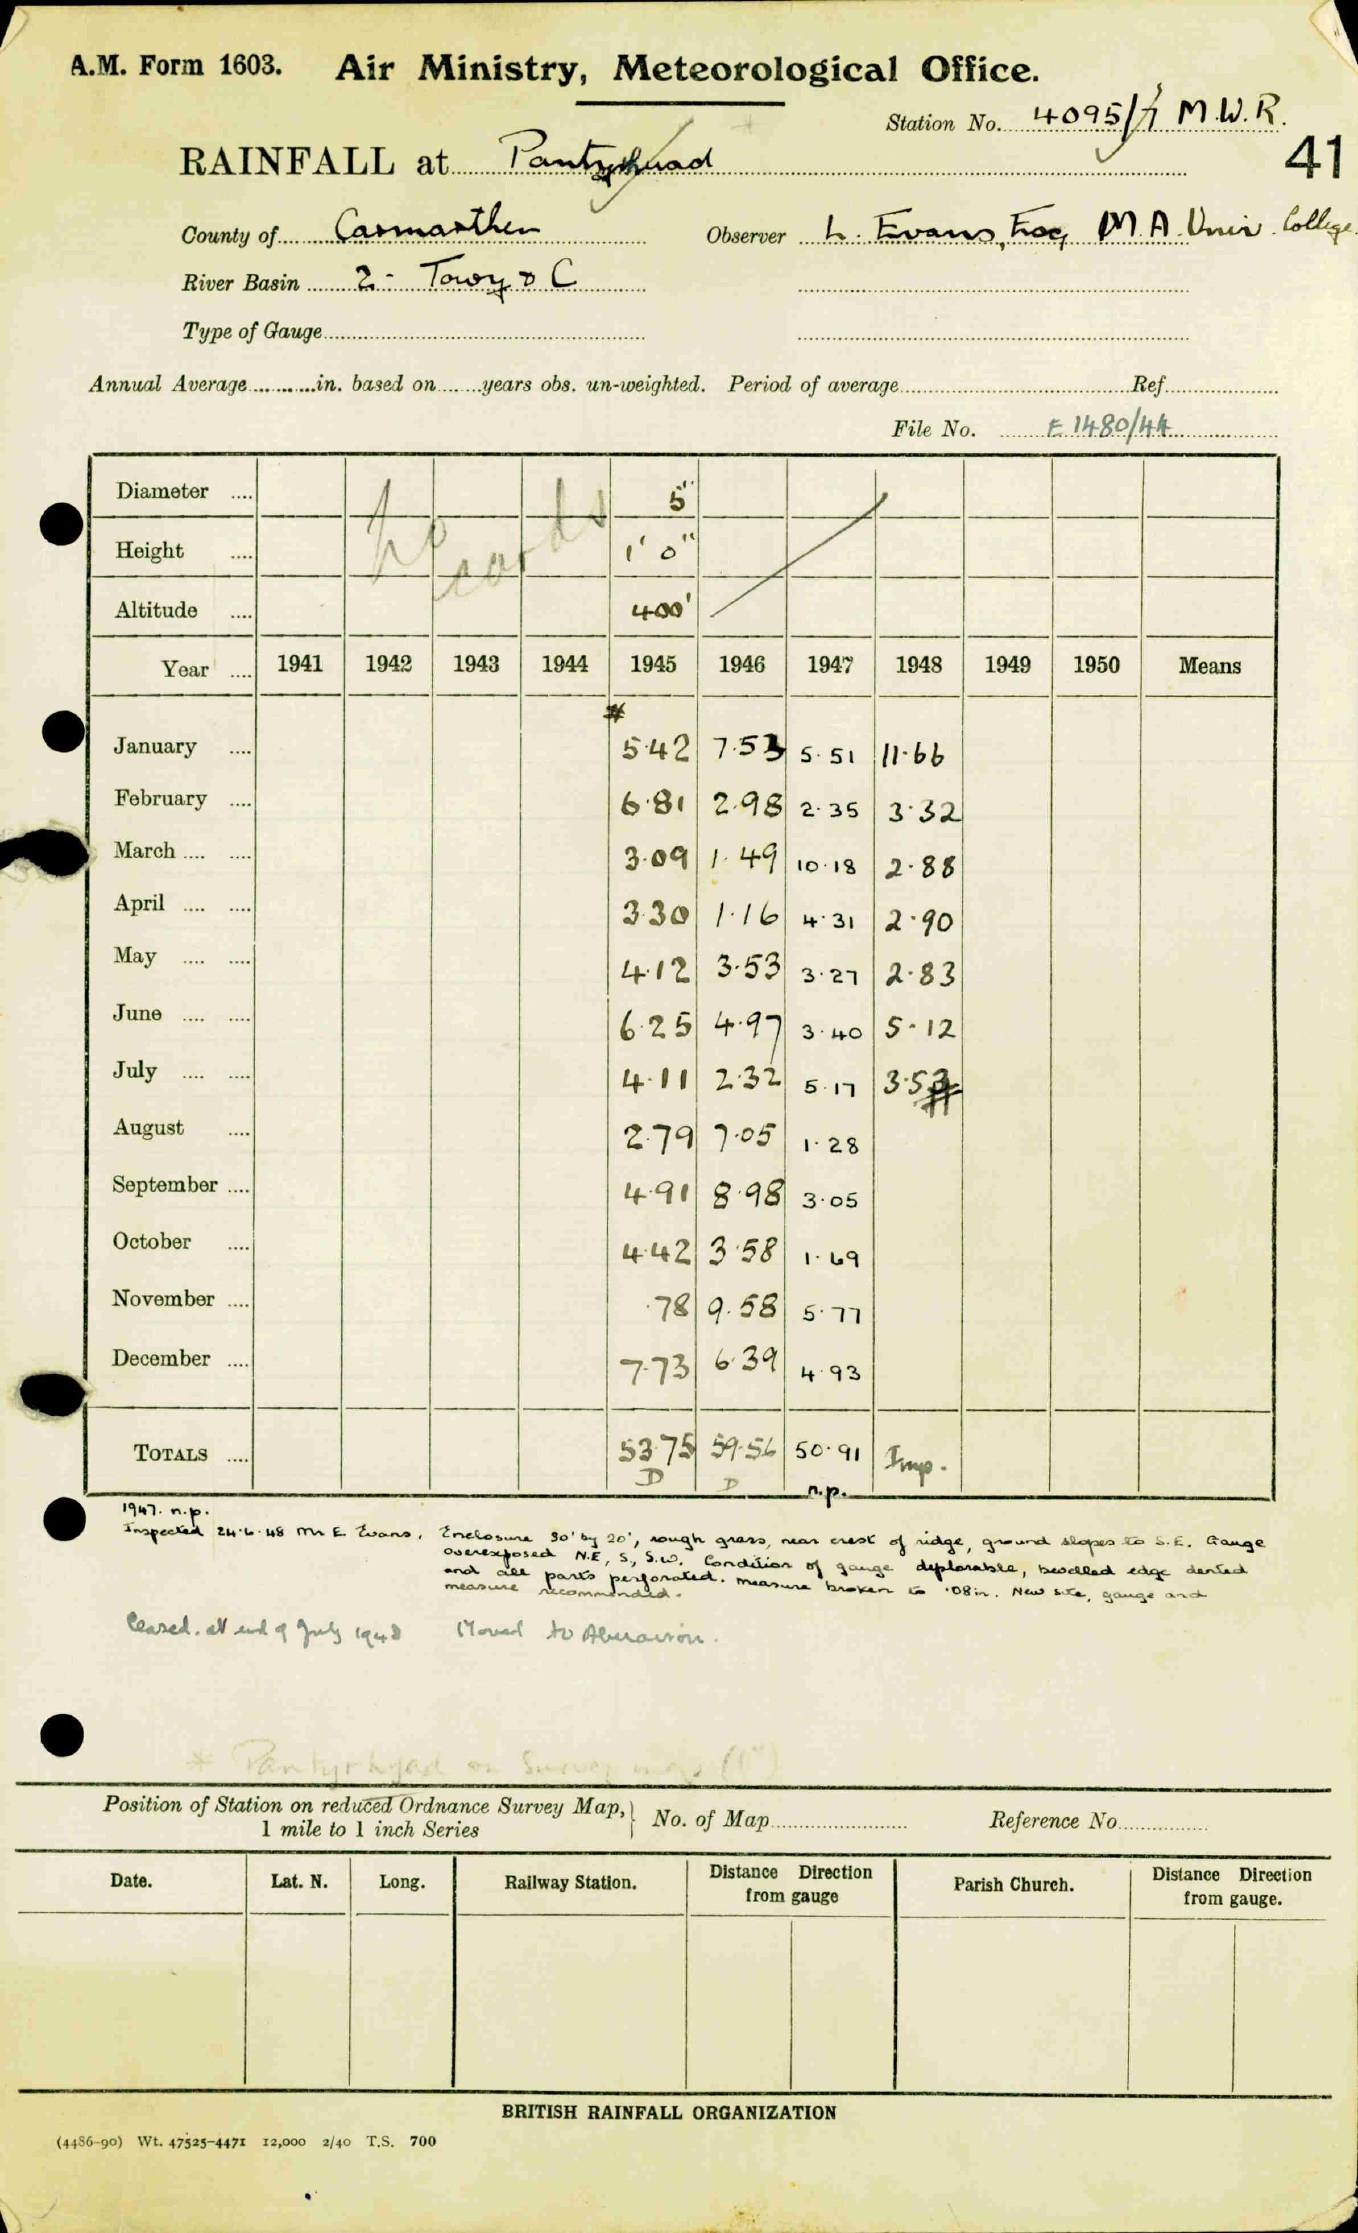 A.M. Form 1603. Air Ministry, Meteorological Office.
Station No. 4095/1 M.W.R.
41
RAINFALL at
County of Carmarthen Observer L. Evans, Esq M.A. Univ. College.
River Basin 2 - Towy & C
Type of Gauge
Annual Average in. based on years obs. un-weighted. Period of average Ref
File No. E 1480/44
Diameter 5"
Height 1' 0"
Altitude 400'
Year 1941 1942 1943 1944 1945 1946 1947 1948 1949 1950 Means
January 5.42 7.53 5.51 11.66
February 6.81 2.98 2.35 3.32
March 3.09 1.49 10.18 2.88
April 3.30 1.16 4.31 2.90
May 4.12 3.53 3.27 2.83
June 6.25 4.97 3.40 5.12
July 4.11 2.32 5.17 3.53
August 2.79 7.05 1.28
September 4.91 8.98 3.05
October 4.42 3.58 1.69
November .78 9.58 5.77
December 7.73 6.39 4.93
TOTALS 53.75 59.56 50.91 Imp.
D D n.p.
1947. n.p.
Inspected 24.6.48 Mr E. Evans, Enclosure 30' by 20', rough grass, near crest of ridge, ground slopes to S.E. Gauge
overexposed N.E, S, S.W. Condition of gauge deplorable, bevelled edge dented
and all parts perforated. Measure broken to .08in. New site, gauge and
measure recommended.
Ceased. at end of July 1948 Moved to Aberaeron.
* Pantyrhyad on Survey map (1")
Position of Station on reduced Ordnance Survey Map,
1 mile to 1 inch Series
No. of Map Reference No
Date. Lat. N. Long. Railway Station. Distance Direction from gauge Parish Church. Distance Direction from gauge.
BRITISH RAINFALL ORGANIZATION
(4486-90) Wt. 47525-4471 12,000 2/40 T.S. 700